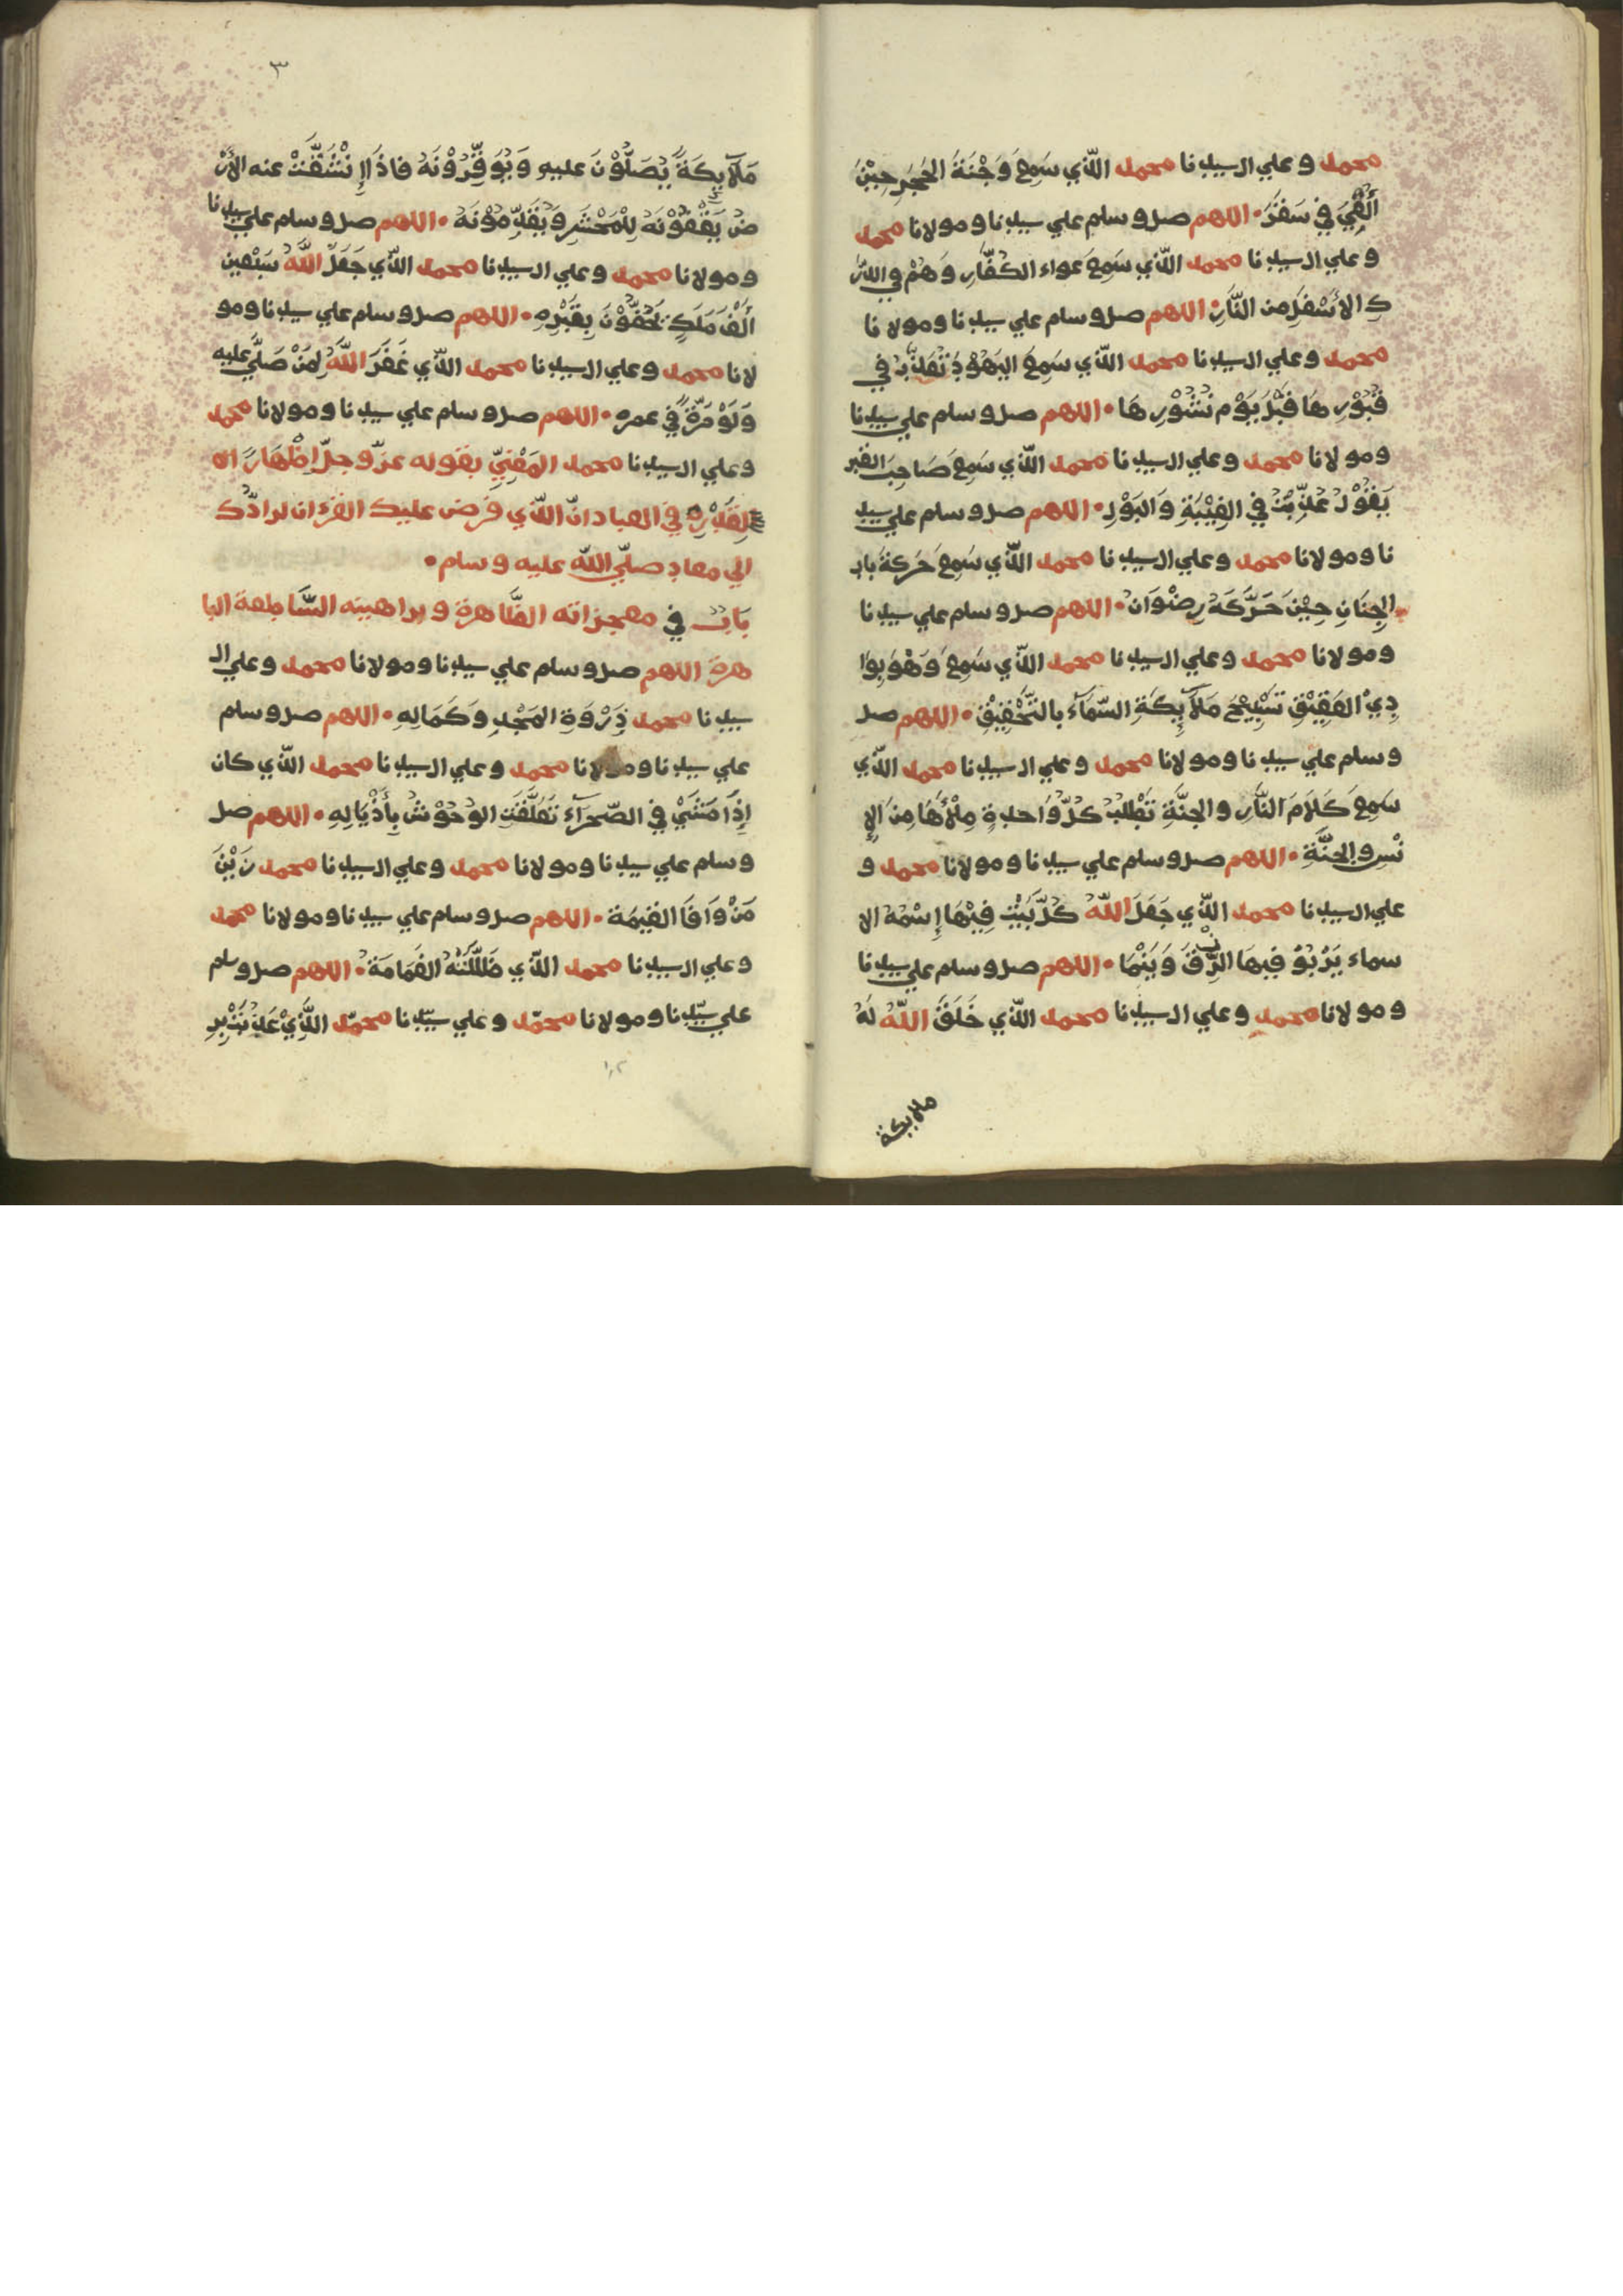 محمد وعلي ال سيدنا محمد الّذي سَمِعَ وَجْبَةَ الحَجَرِ حِيْنَ
أُلْقِيَ في سَقَرَ • اللهم صل وسلم علي سيدنا ومولانا محمد
وعلي ال سيدنا محمد الّذي سَمِعَ عواء الكُفَّارِ وَهُمْ في الدَّر
كِ الاَسْفَلِ من النَّارِ • اللهم صل وسلم علي سيدنا ومولانا
محمد وعلي ال سيدنا محمد الّذي سَمِعَ اليَهُوْدَ تُعَذَّبُ في
قُبُوْرِهَا قَبْلَ يَوْمِ نُشُوْرِهَا • اللهم صل وسلم علي سيدنا
ومولانا محمد وعلي ال سيدنا محمد الّذي سَمِعَ صَاحِبَ القبر
يَقُوْلُ عُذِّبْتُ في الغِيْبَةِ وَالبَوْلِ • اللهم صل وسلم علي سيد
نا ومولانا محمد وعلي ال سيدنا محمد الّذي سَمِعَ حَرَكَةَ باب
الجِنَانِ حِيْنَ حَرَّكَهُ رِضْوَانُ • اللهم صل وسلم علي سيدنا
ومولانا محمد وعلي ال سيدنا محمد الّذي سَمِعَ وَهُوَ بِوَا
دِيْ العَقِيْقِ تَسْبِيْحَ مَلَآيِكَةِ السَّمَآءِ بالتَّحْقِيْقِ • اللهم صل
وسلم علي سيدنا ومولانا محمد وعلي ال سيدنا محمد الّذي
سَمِعَ كَلَامَ النَّارِ والجنَّةِ تَطْلُبُ كُلُّ وَاحدةٍ مِلْأَهَا مِنَ الاِ
نْسِ والجِنَّةِ • اللهم صل وسلم علي سيدنا ومولانا محمد و
علي ال سيدنا محمد الّذي جَعَلَ اللّهُ كُلَّ بَيْتٍ فِيْهَا إِسْمُهُ الا
سماء يَرْبُوْ فيها الرِّزْقَ وَيَنْمَا • اللهم صل وسلم علي سيدنا
ومولانا محمد وعلي ال سيدنا محمد الّذي خَلَقَ اللّهُ لَهُ
ملايكة
٣
مَلَآيِكَةً يُصَلُّوْنَ عليهِ وَيُوَقِّرُوْنَهُ فاذَا اِنْشَقَّتْ عنه الأَرْ
ضُ يَقْفُوْنَهُ لِلْمَحْشَرِ وَيُقَدِّمُوْنَهُ • اللهم صل وسلم علي سيدنا
ومولانا محمد وعلي ال سيدنا محمد الّذي جَعَلَ اللّهُ سَبْعين
أَلْفَ مَلَكٍ يَحُفُّوْنَ بِقَبْرِهِ • اللهم صل وسلم علي سيدنا ومو
لانا محمد وعلي ال سيدنا محمد الّذي غَفَرَ اللّهُ لِمَنْ صَلَّي عليه
وَلَوْ مَرَّةً في عمره • اللهم صل وسلم علي سيدنا ومولانا محمد
وعلي ال سيدنا محمد المَعْنِيّ بقوله عزّ وجلّ إِظْهَارًا
لِقَدْرِهِ في العباد انّ الّذي فرض عليك القرءان لرادّك
الي معادٍ صلّي اللّه عليه وسلم •
بَابٌ في معجزاته الظَّاهرة وبراهينه السَّاطعة البا
هرة اللهم صل وسلم علي سيدنا ومولانا محمد وعلي ال
سيدنا محمد ذِرْوَةِ المَجْدِ وَكَمَالِهِ • اللهم صل وسلم
علي سيدنا ومولانا محمد وعلي ال سيدنا محمد الّذي كان
إِذَا مَشَيْ في الصَّحرَآءِ تَعَلَّقَتِ الوُحُوْشُ بِأَذْيَالِهِ • اللهم صل
وسلم علي سيدنا ومولانا محمد وعلي ال سيدنا محمد زَيْنِ
مَنْ وَافَا القيمَة • اللهم صل وسلم علي سيدنا ومولانا محمد
وعلي ال سيدنا محمد الّذي ظَلَّلَتْهُ الغَمَامَةُ • اللهم صل وسلم
علي سيّدنا ومولانا محمّد وعلي سيّدنا محمّد الَّذِيْ عَذُبَتْ بِبرِ